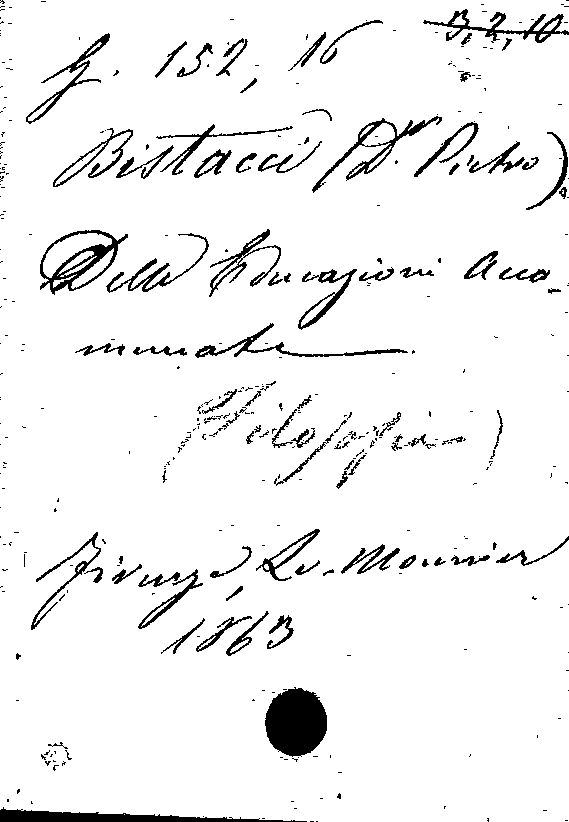 3,2,10
G. 152, 16
Bistacci (D.r Pietro).
Delle Educazioni Acca-
(Filosofia)
Firenze, Le-Monnier
1863